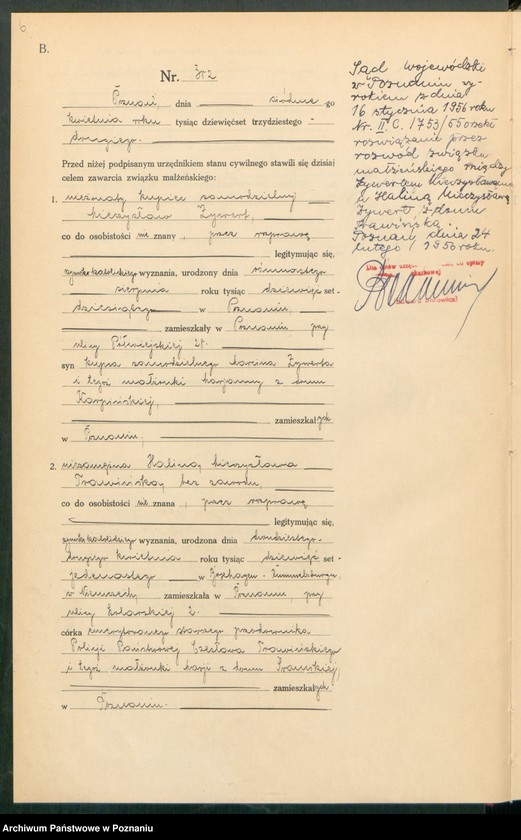 6
B.
Nr. 382
Poznań, dnia siódme go
kwietnia roku tysiąc dziewięćset trzydziestego
drugiego.
Przed niżej podpisanym urzędnikiem stanu cywilnego stawili się dzisiaj
celem zawarcia związku małżeńskiego:
1. nieżonaty kupiec samodzielny
Mieczysław Żywert,
co do osobistości nie znany, przez rozprawę
legitymując się,
rzymsko katolickiego wyznania, urodzony dnia
sierpnia roku tysiąc dziewięć set
dziesiątego w Poznaniu,
zamieszkały w Poznaniu, przy
ulicy Półwiejskiej 21.
syn kupca samodzielnego Marcina Żywerta
i tegoż małżonki Marjanny z domu
Karpińskiej,
zamieszkałych
w Poznaniu,
2. niezamężna Halina, Mieczysława
Trawińska, bez zawodu,
co do osobistości nie znana, przez rozprawę
legitymując się,
rzymsko katolickiego wyznania, urodzona dnia dwudziestego
drugiego kwietnia roku tysiąc dziewięć set
jedenastego w Boxhagen - Rummelsburgu,
w Niemczech zamieszkała w Poznaniu, przy
ulicy 2.
córka emerytowanego starszego przodownika
Policji Państwowej Czesława Trawińskiego
i tegoż małżonki Marji z domu
zamieszkałych
w Poznaniu.
Sąd wojewódzki
w Poznaniu wy-
rokiem z dnia
16 stycznia 1956 roku
Nr. II C. 1753/55 orzekł
rozwiązanie przez
rozwód związku
małżeńskiego między
Żywertem Mieczysławem
a Haliną Mieczysławą
Żywert z domu
Trawińską.
Poznań, dnia 24
lutego 1956 roku.
Archiwum Państwowe w Poznaniu